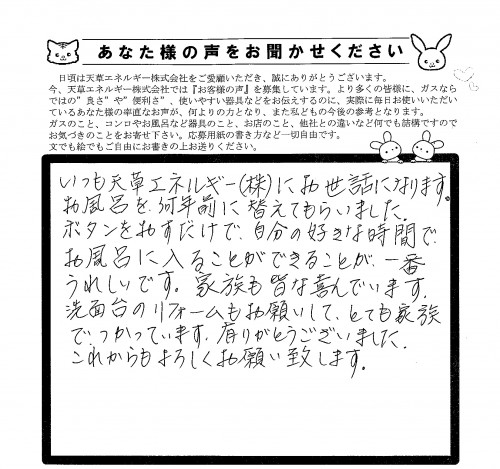 あなた様の声をお聞かせください
日頃は天草エネルギー株式会社をご愛顧いただき、誠にありがとうございます。
今、天草エネルギー株式会社では『お客様の声』を募集しています。より多くの皆様に、ガスなら
ではの”良さ”や”便利さ”、使いやすい器具などをお伝えするのに、実際に毎日お使いいただい
ているあなた様の率直なお声が、何よりの力となり、また私どもの今後の参考となります。
ガスのこと、コンロやお風呂など器具のこと、お店のこと、他社との違いなど何でも結構ですので
お気づきのことをお寄せ下さい。応募用紙の書き方など一切自由です。
文でも絵でもご自由にお書きの上お送りください。
いつも天草エネルギー(株)にお世話になります。
お風呂を何年前に替えてもらいました。
ボタンをおすだけで、自分の好きな時間で
お風呂に入ることができることが、一番
うれしいです。家族も皆な喜んでいます。
洗面台のリフォームもお願いして、とても家族
で、つかっています。有りがとうございました。
これからもよろしくお願い致します。